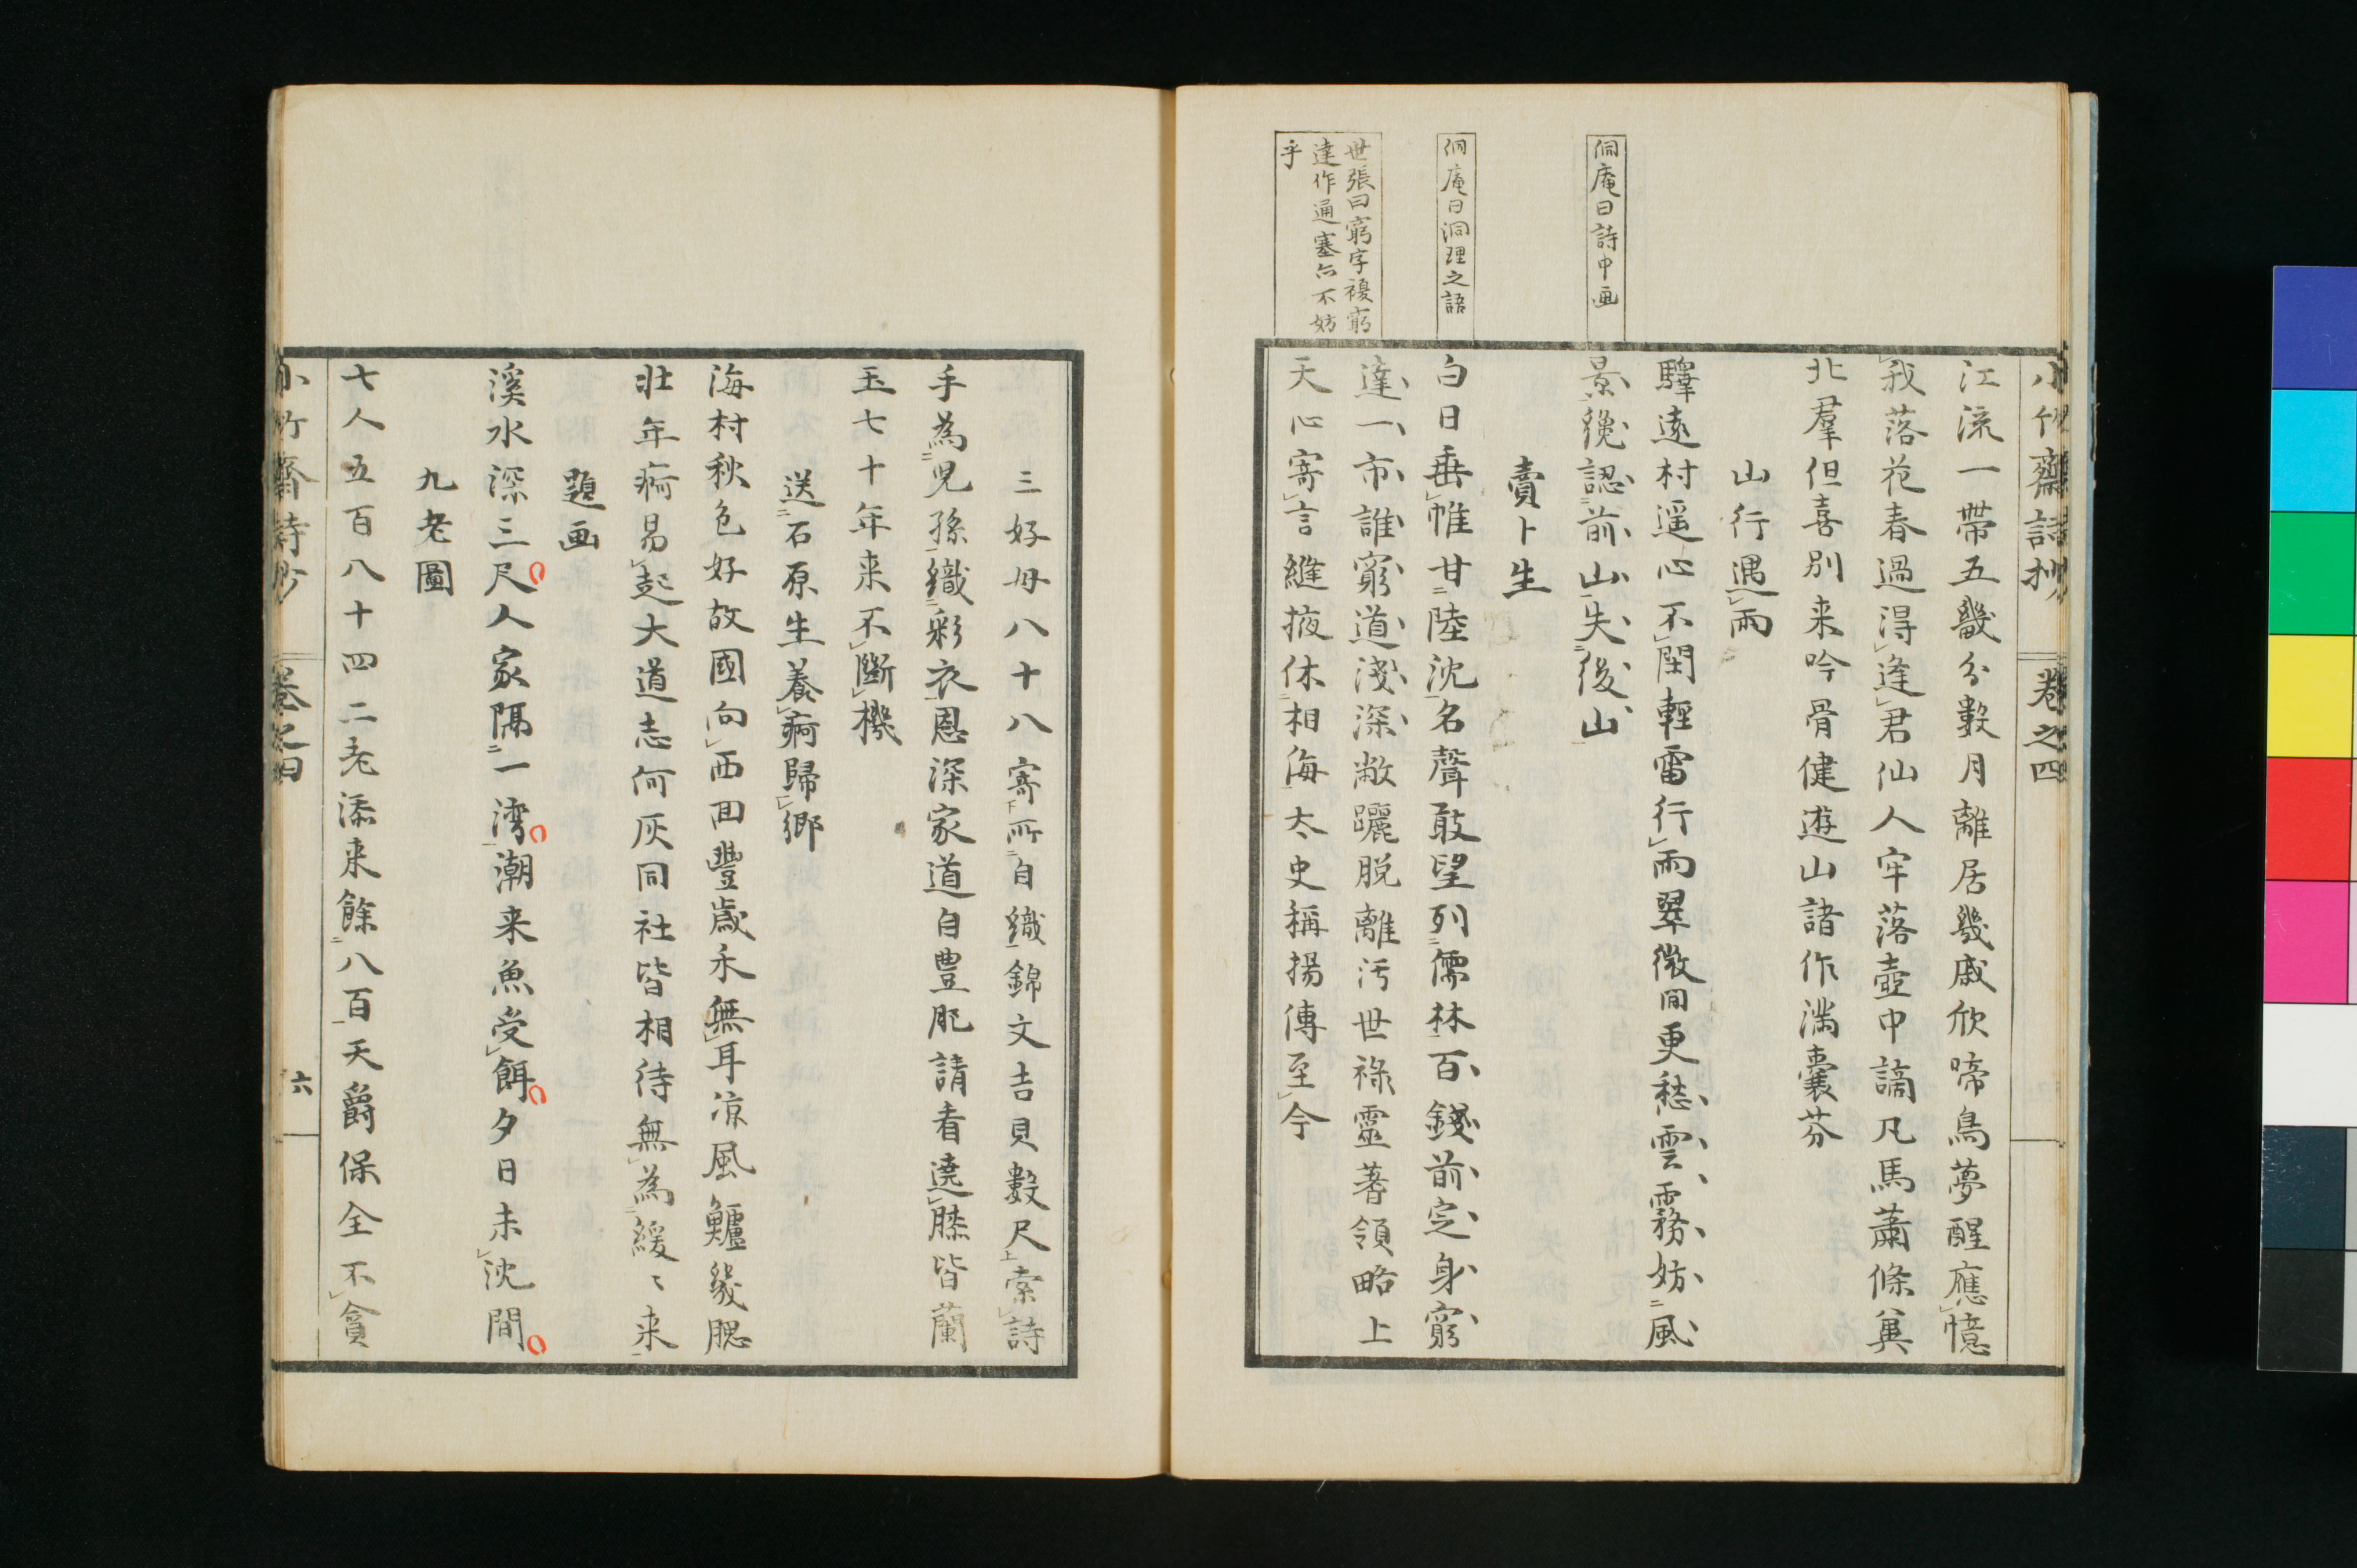 小竹齋詩抄 卷之四
江流一帶五畿分數月離居幾戚欣啼鳥夢醒應憶
我落花春過得逢君仙人牢落壺中謫凡馬蕭條冀
北羣但喜別来吟骨健遊山諸作滿囊芬
山行遇雨
驛遠村遥心不閑輕雷行雨翠微間更愁雲霧妨風
景纔認前山失後山
賣卜生
白日垂帷甘陸沈名聲敢望列儒林百錢前定身窮
達一市誰窮道淺深敝躧脱離汚世祿靈蓍領略上
天心寄言縫掖休相侮太史稱揚傳至今
侗庵曰詩中画
侗庵曰洞理之語
世張曰窮字複窮
達作通塞亦不妨
乎
三好母八十八寄所自織錦文吉貝數尺索詩
手為児孫織彩衣恩深家道自豊肥請看遶膝皆蘭
玉七十年来不斷機
送石原生養痾歸鄉
海村秋色好故國向西回豐歲禾無耳凉風鱸幾腮
壯年痾易起大道志何灰同社皆相待無為緩々来
題画
溪水深三尺人家隔一湾潮来魚受餌夕日未沈間
九老圖
七人五百八十四二老添来餘八百天爵保全不貪
小竹齋詩抄 卷之四 六